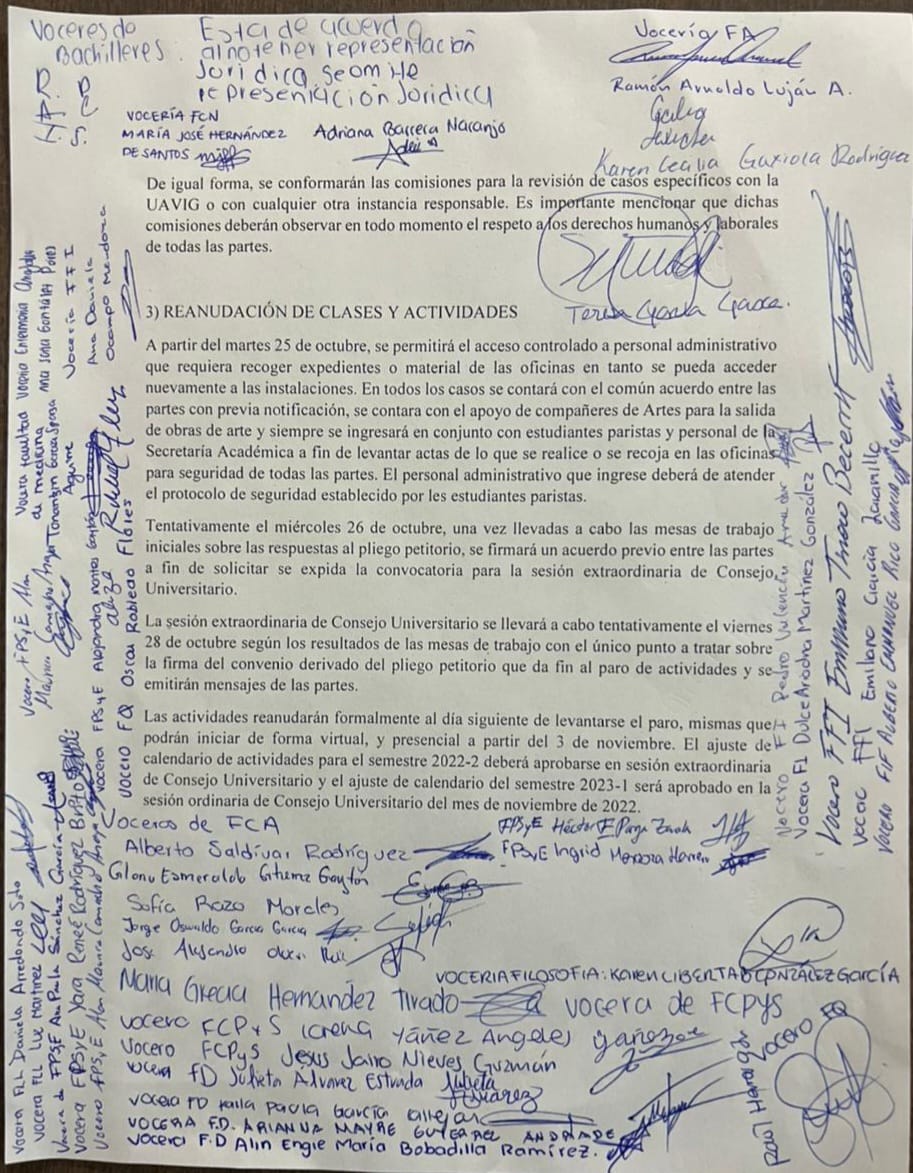 Voceres de
Bachilleres.
Esta de acuerdo
al no tener representación
Juridica se omite
representación Juridica
H.A.R.
VOCERÍA FCN
MARÍA JOSÉ HERNÁNDEZ
DE SANTOS
Adriana Barrera Naranjo
Vocería FA
Ramón Arnoldo Luján A.
Karen Cecilia Gaxiola Rodriguez
De igual forma, se conformarán las comisiones para la revisión de casos específicos con la
UAVIG o con cualquier otra instancia responsable. Es importante mencionar que dichas
comisiones deberán observar en todo momento el respeto a los derechos humanos y laborales
de todas las partes.
Teresa García
3) REANUDACIÓN DE CLASES Y ACTIVIDADES
A partir del martes 25 de octubre, se permitirá el acceso controlado a personal administrativo
que requiera recoger expedientes o material de las oficinas en tanto se pueda acceder
nuevamente a las instalaciones. En todos los casos se contará con el común acuerdo entre las
partes con previa notificación, se contara con el apoyo de compañeres de Artes para la salida
de obras de arte y siempre se ingresará en conjunto con estudiantes paristas y personal de la
Secretaría Académica a fin de levantar actas de lo que se realice o se recoja en las oficinas
para seguridad de todas las partes. El personal administrativo que ingrese deberá de atender
el protocolo de seguridad establecido por les estudiantes paristas.
Tentativamente el miércoles 26 de octubre, una vez llevadas a cabo las mesas de trabajo
iniciales sobre las respuestas al pliego petitorio, se firmará un acuerdo previo entre las partes
a fin de solicitar se expida la convocatoria para la sesión extraordinaria de Consejo
Universitario.
La sesión extraordinaria de Consejo Universitario se llevará a cabo tentativamente el viernes
28 de octubre según los resultados de las mesas de trabajo con el único punto a tratar sobre
la firma del convenio derivado del pliego petitorio que da fin al paro de actividades y se
emitirán mensajes de las partes.
Las actividades reanudarán formalmente al día siguiente de levantarse el paro, mismas que
podrán iniciar de forma virtual, y presencial a partir del 3 de noviembre. El ajuste de
calendario de actividades para el semestre 2022-2 deberá aprobarse en sesión extraordinaria
de Consejo Universitario y el ajuste de calendario del semestre 2023-1 será aprobado en la
sesión ordinaria de Consejo Universitario del mes de noviembre de 2022.
Voceros de FCA
Alberto Saldívar Rodríguez
Sofía Razo Morales
Jorge Oswaldo Garcia Garcia
FPSyE Héctor E Parga
FPSyE Ingrid
VOCERIA FILOSOFIA: KAREN LIBERTAD GONZÁLEZ GARCÍA
Maria Grecia Hernandez Tirado vocera de FCPyS
vocera FCPyS Lorena Yáñez Angeles
Vocero FCPyS Jesus Jairo Nieves Guzmán
vocera FD Julieta Alvarez Estrada
vocera FD Karla Paola García
VOCERA F.D. ARIANNA MAYRE GUTIERREZ ANDRADE
Vocera F.D Alin Engie María Bobadilla Ramírez.
Vocera FLL Daniela Arredondo Soto
VOCERA FLL LUZ MARTINEZ
Vocera de FPSyE Ana Paula Sánchez García
Vocera FPSyE Yara Reneé Rodríguez Brito
Vocero FPSyE Alan
Vocera FPSyE Alejandra
VOCERO FQ Oscar Robledo Flores
Vocera facultad
de medicina
Vocería Enfermería
Vocería FFI
Ana Daniela
Ocampo Mendoza
Vocero FI Pedro Valencia
Vocera FI Dulce Ariadna Martínez González
Vocero FFI Emiliano Tinoco Becerril
Vocal FFI Emiliano García Jaramillo
Vocero FIF
Vocero FQ